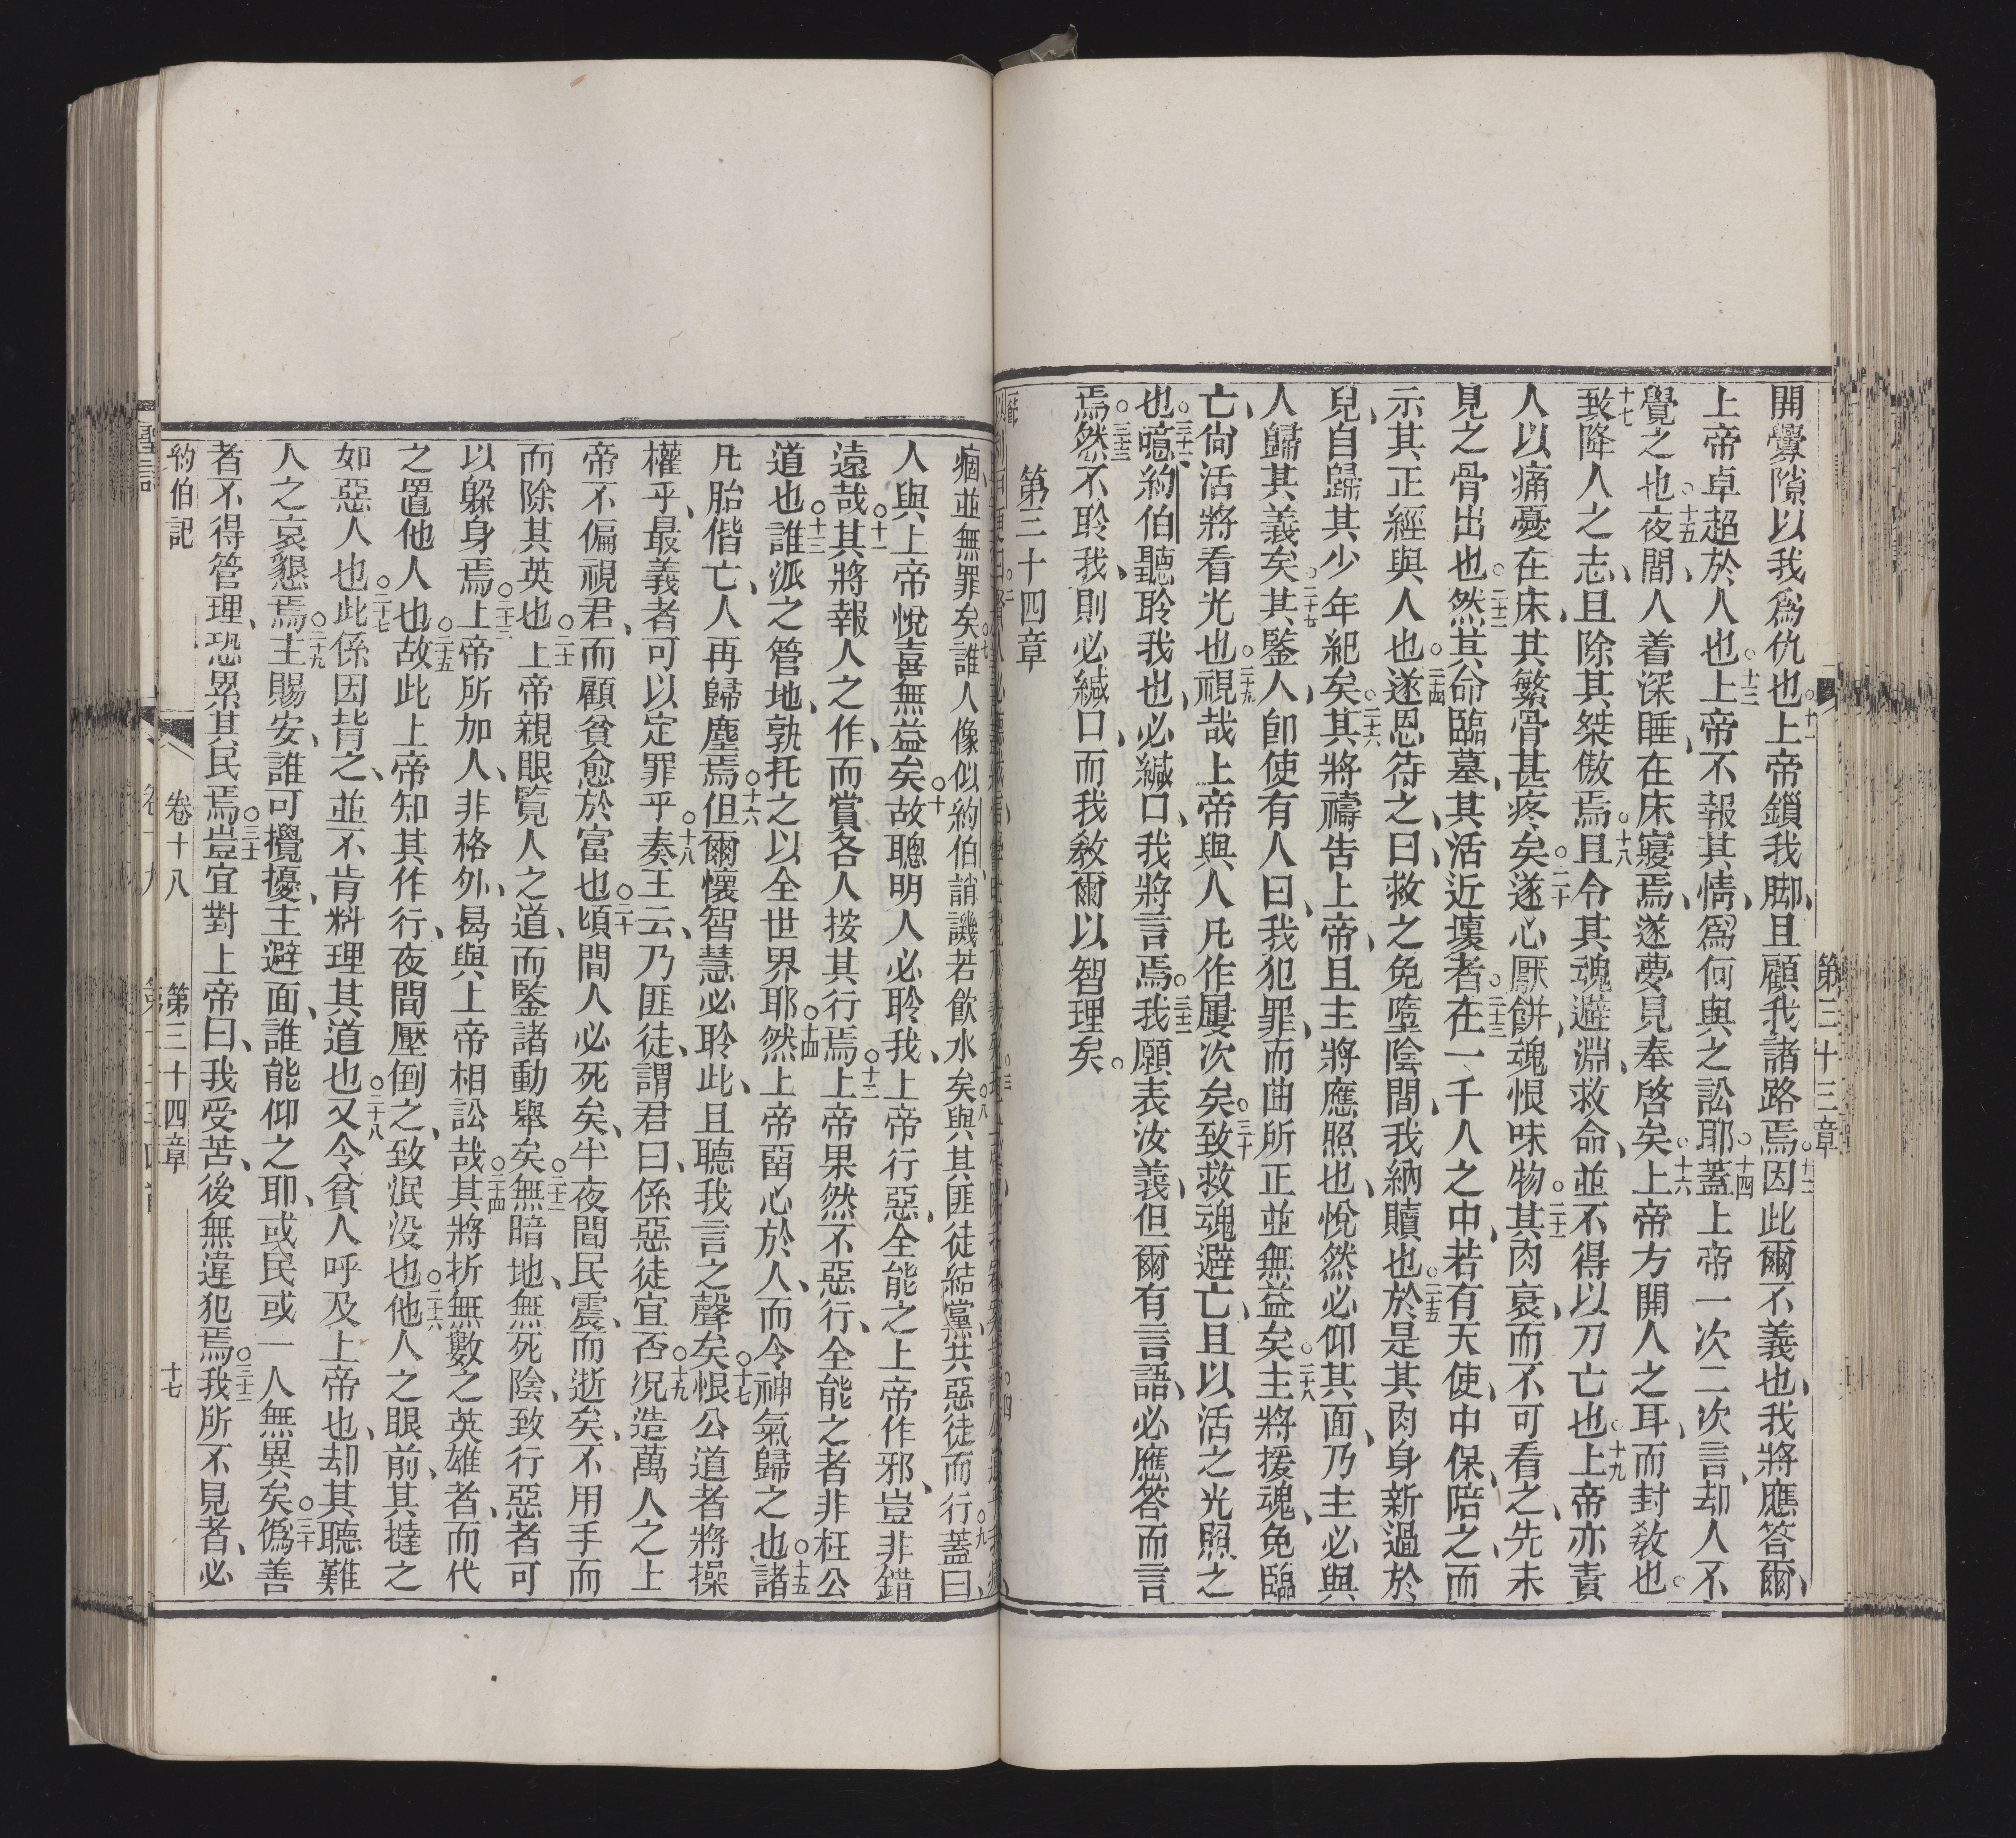 第三十三章
開釁隙以我爲仇也。十一上帝鎖我脚、且顧我諸路焉。十二因此爾不義也、我將應答爾、
上帝卓超於人也。十三上帝不報其情、爲何與之訟耶。十四蓋上帝一次二次言、却人不
覺之也。十五夜間、人着深睡、在床寢焉、遂夢見奉啓矣。十六上帝方開人之耳、而封教也。
十七致降人之志、且除其桀傲焉。十八且令其魂避淵、救命、並不得以刀亡也。十九上帝亦責
人以痛憂在床、其繁骨甚疼矣。二十遂心厭餅、魂恨味物。二十一其肉衰、而不可看之、先未
見之骨出也。二十二然其命臨墓、其活近壞者。二十三在一千人之中、若有天使、中保、陪之、而
示其正經與人也。二十四遂恩待之、曰、救之免墮陰間、我納贖也。二十五於是其肉身新過於
兒、自歸其少年紀矣。二十六其將禱吿上帝、且主將應照也、悅然必仰其面、乃主必與
人歸其義矣。二十七其鑒人、卽使有人曰、我犯罪、而曲所正並無益矣。二十八主將援魂、免臨
亡、尙活將看光也。二十九視哉上帝與人凡作屢次矣。三十致救魂避亡、且以活之光照之
也。三十一噫約伯聽聆我也、必緘口、我將言焉。三十二我願表汝義、但爾有言語、必應答而言
焉。三十三然不聆我、則必緘口、而我敎爾以智理矣。
第三十四章
痼、並無罪矣。七誰人像似約伯、誚譏若飮水矣。八與其匪徒結黨、共惡徒而行。九蓋曰、
人與上帝悅喜無益矣。十故聰明人必聆我、上帝行惡、全能之上帝作邪、豈非錯
遠哉。十一其將報人之作、而賞各人按其行焉。十二上帝果然不惡行、全能之者非枉公
道也。十三誰派之管地、孰托之以全世界耶。十四然上帝留心於人、而令神氣歸之也。十五諸
凡胎偕亡、人再歸塵焉。十六但爾懷智慧必聆此、且聽我言之聲矣。十七恨公道者將操
權乎、最義者可以定罪乎。十八奏王云、乃匪徒、謂君曰、係惡徒宜否。十九况造萬人之上
帝不偏視君、而顧貧愈於富也。二十頃間人必死矣、半夜間民震、而逝矣、不用手而
而除其英也。二十一上帝親眼覽人之道、而鑒諸動舉矣。二十二無暗地、無死陰、致行惡者可
以躲身焉。二十三上帝所加人、非格外、曷與上帝相訟哉。二十四其將折無數之英雄者、而代
之置他人也。二十五故此上帝知其作行、夜間壓倒之、致泯没也。二十六他人之眼前、其撻之
如惡人也。二十七此係因背之、並不肯料理其道也。二十八又令貧人呼及上帝也、却其聽難
人之哀懇焉。二十九主賜安、誰可攪擾、主避面、誰能仰之耶、或民或一人無異矣。三十僞善
者不得管理、恐累其民焉。三十一豈宜對上帝曰、我受苦、後無違犯焉。三十二我所不見者、必
約伯記 卷十八 第三十四章 十七